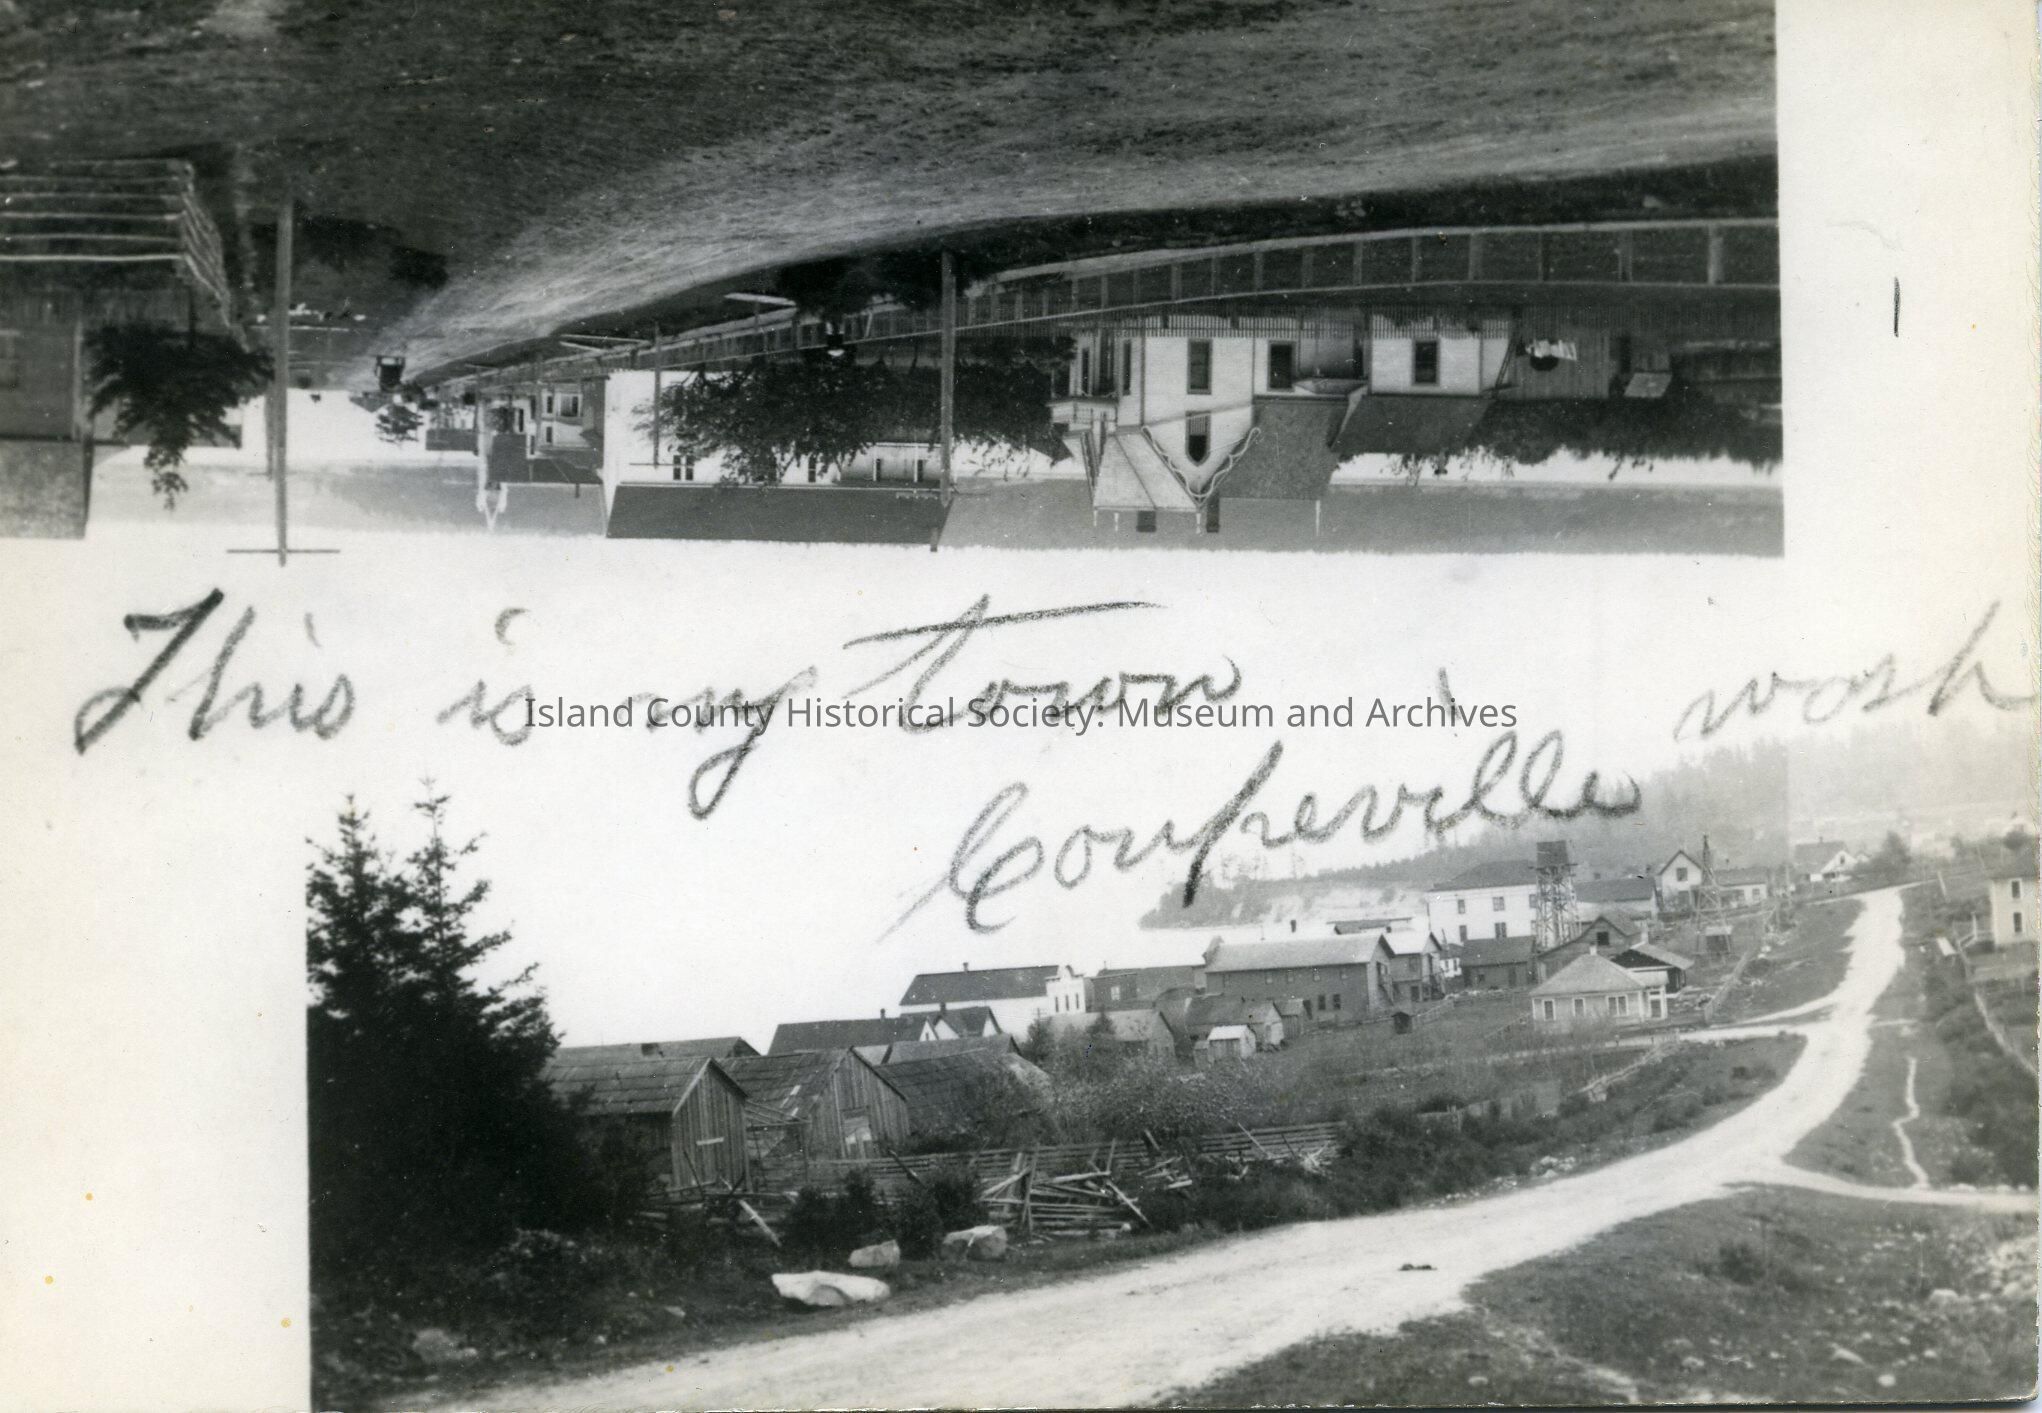 This is my town
Coupeville wash
Island County Historical Society: Museum and Archives